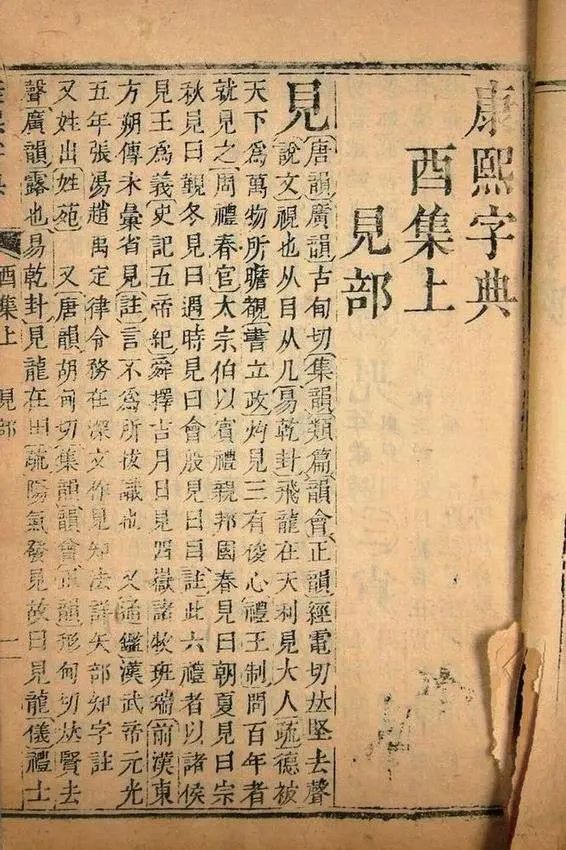 康熙字典
酉集上
見部
見
唐韻廣韻古甸切集韻類篇韻會正韻經電切𠀤堅去聲
說文視也从目从儿易乾卦飛龍在天利見大人疏德被
天下爲萬物所瞻觀書立政灼見三有俊心禮王制問百年者
就見之周禮春官大宗伯以賓禮親邦國春見曰朝夏見曰宗
秋見曰覲冬見曰遇時見曰會殷見曰同註此六禮者以諸侯
見王爲義史記五帝紀舜擇吉月日見四嶽諸牧班瑞前漢東
方朔傳未彙省見註言不爲所拔識也 又通鑑漢武帝元光
五年張湯趙禹定律令務在深文作見知法詳矢部知字註
又姓出姓苑 又唐韻胡甸切集韻韻會正韻形甸切𠀤賢去
聲廣韻露也易乾卦見龍在田疏陽氣發見故曰見龍儀禮士
酉集上 見部 一